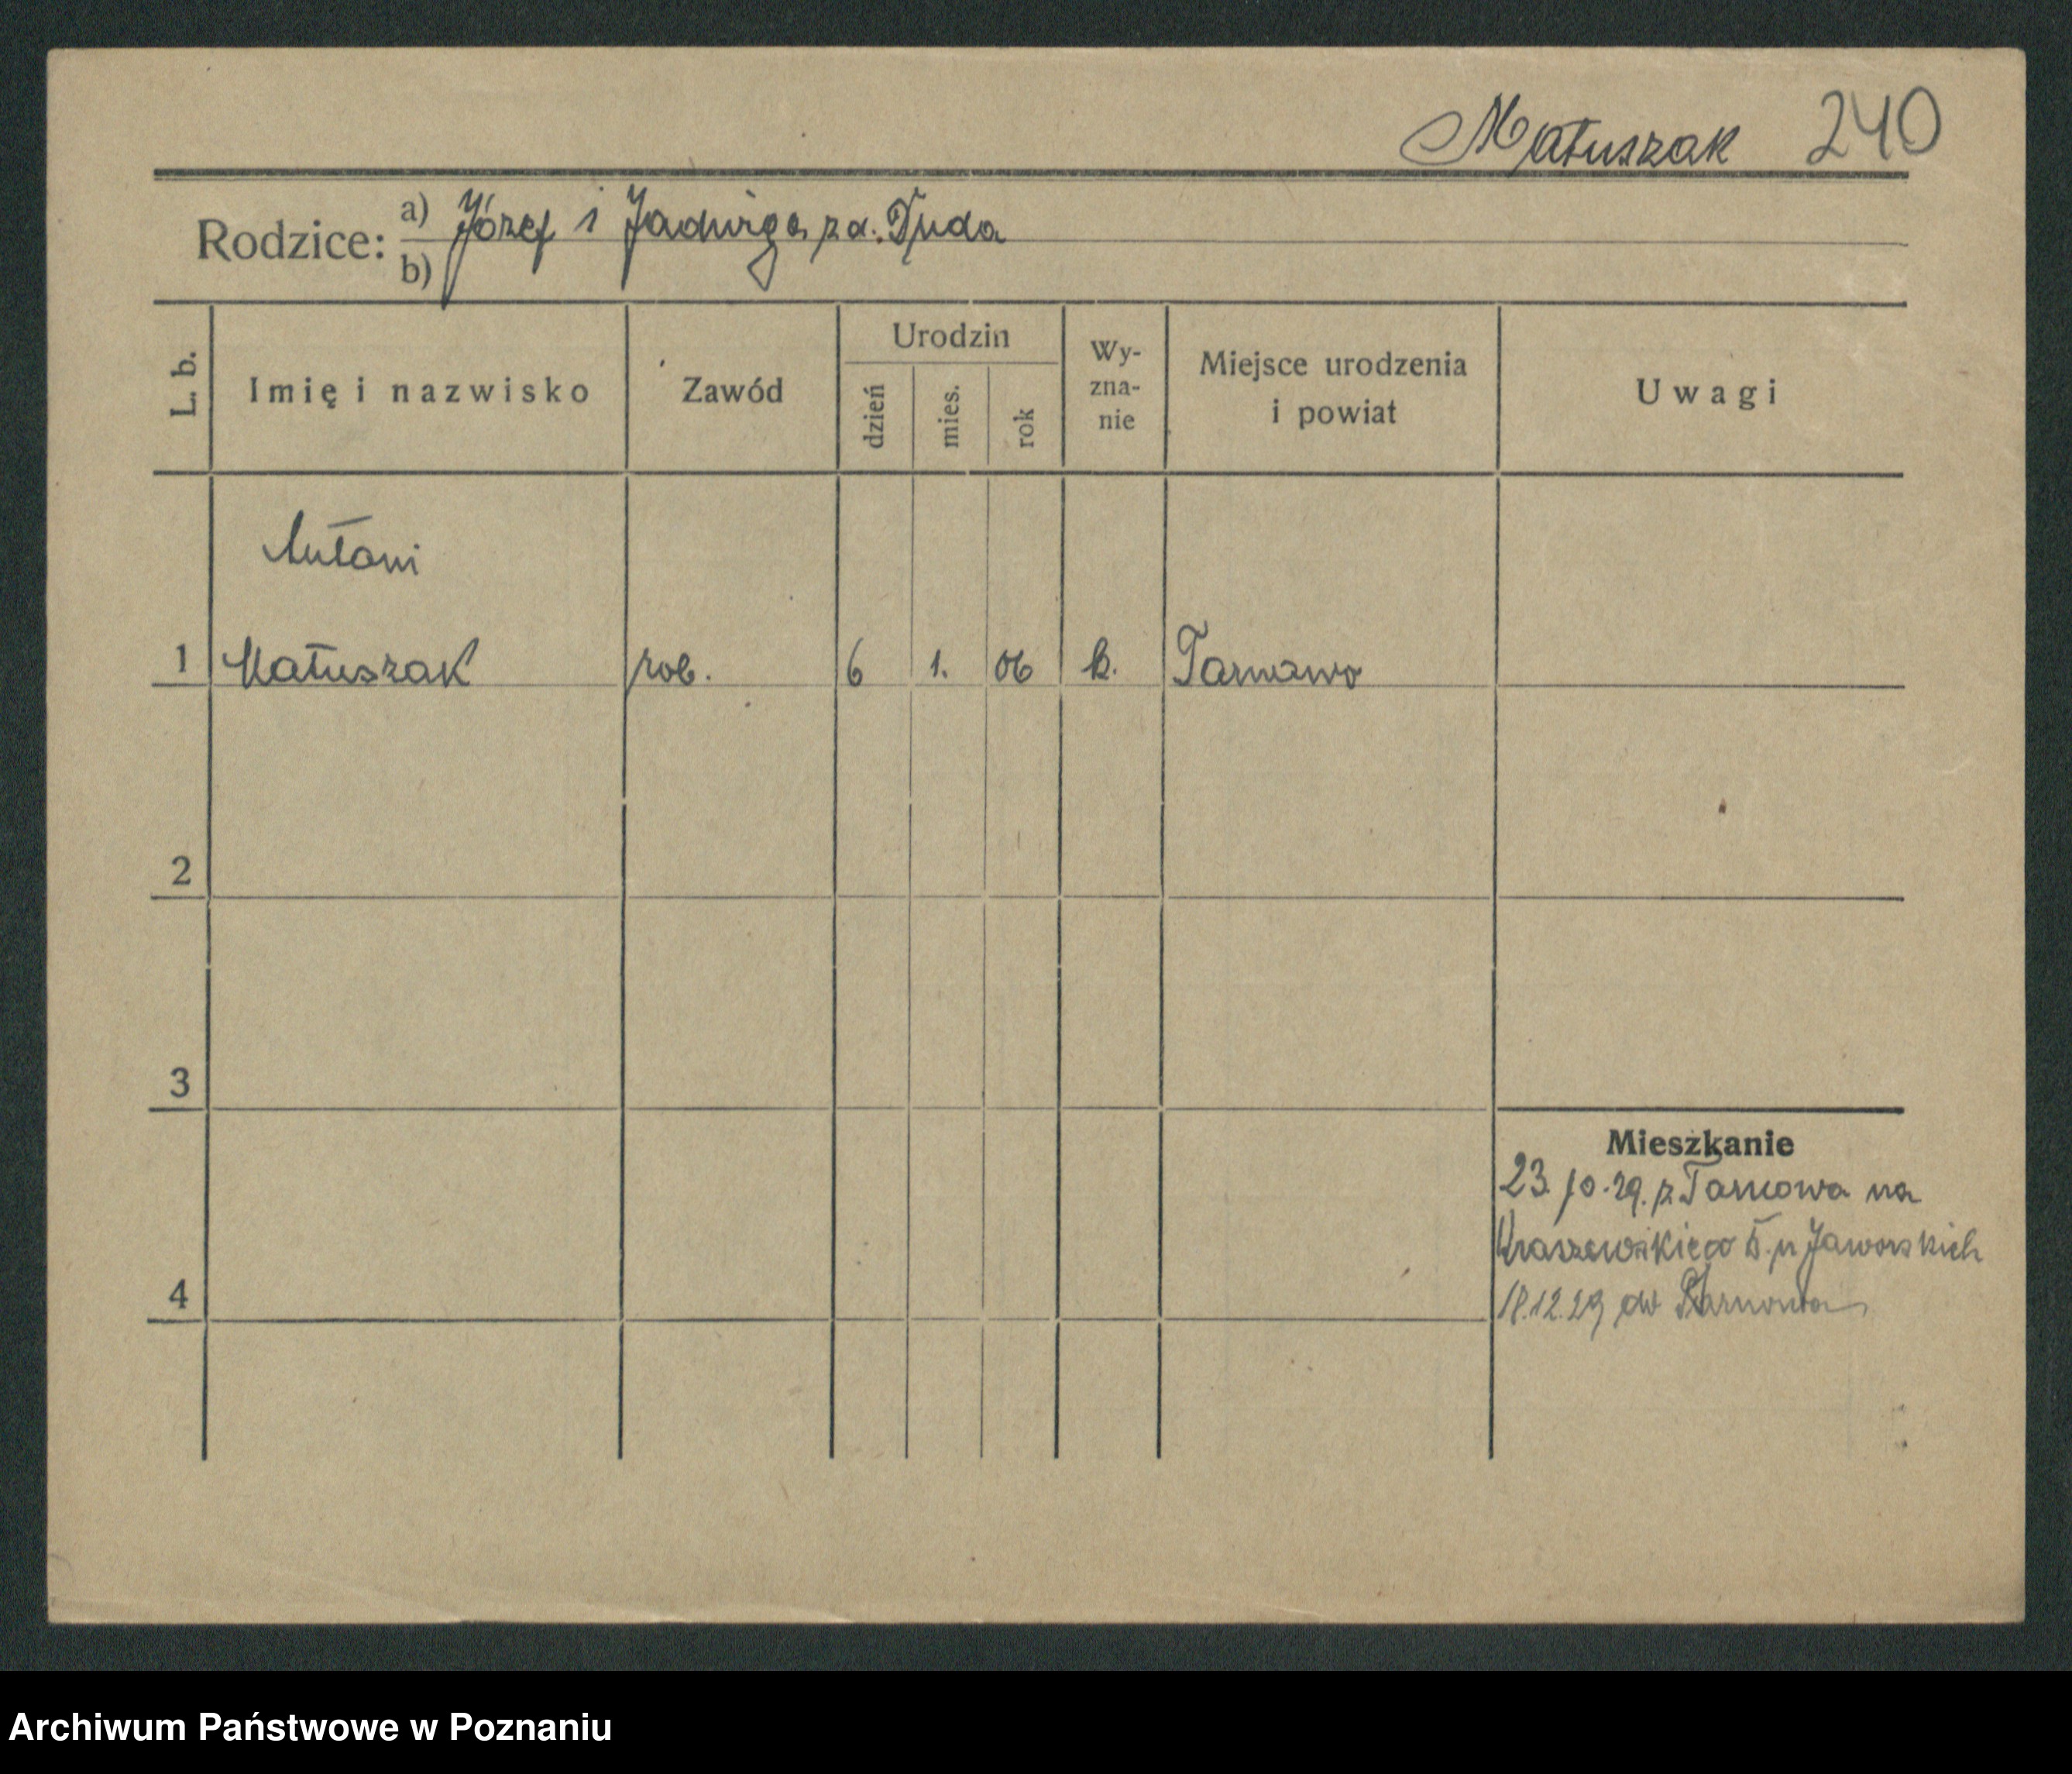 Matuszak 240
Rodzice: a) Józef i Jadwiga zd. Duda
b)
L. b.
Imię i nazwisko
Zawód
Urodzin
dzień
mies.
rok
Wy-
zna-
nie
Miejsce urodzenia
i powiat
Uwagi
Antoni
1 Matuszak rob. 6 1. 06 k. Tarnowo
2
3
Mieszkanie
23.10.29. z Tarnowa na
Kraszewskiego 5. u Jaworskich
4
18.12.29 do Tarnowa
Archiwum Państwowe w Poznaniu